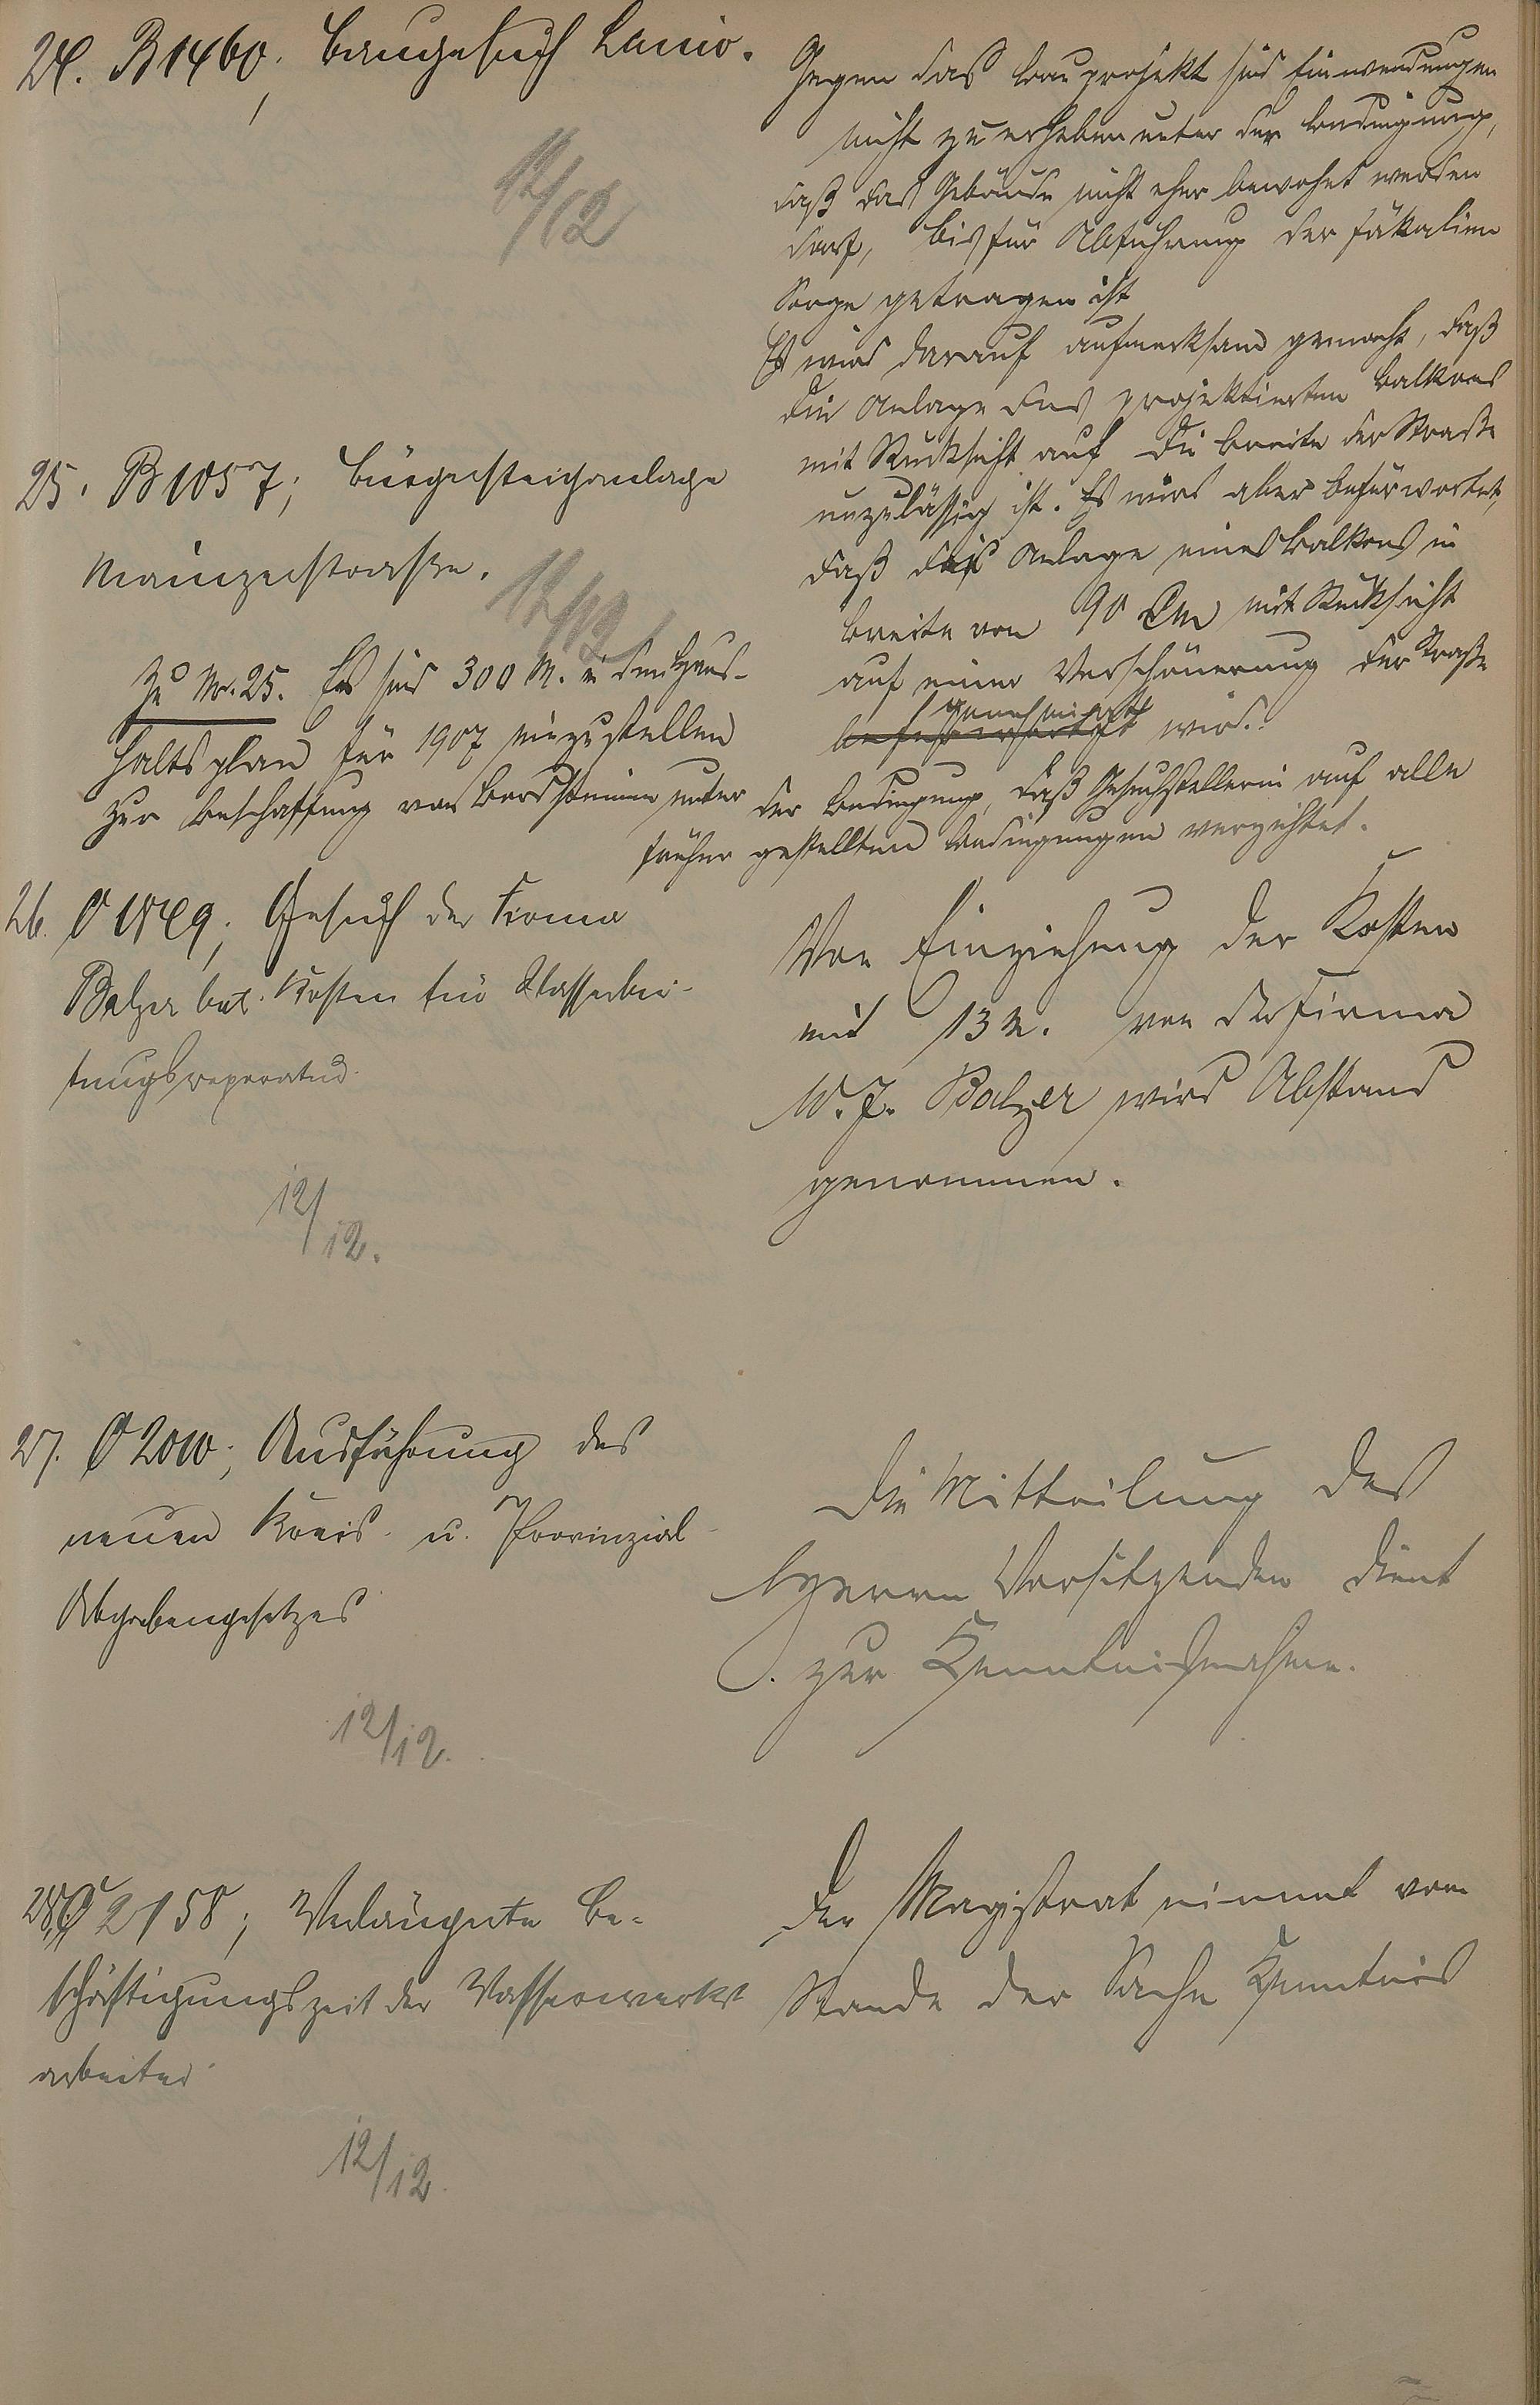 24. B 1460; Baugesuch Lanio.
12/12
Gegen das Bauprojekt sind Einwendungen
nicht zu erheben unter der Bedingung,
daß das Gebäude nicht eher bewohnt werden
darf, bis für Abführung der Fäkalien
Sorge getragen ist
Es wird darauf aufmerksam gemacht, daß
die Anlage des projektierten Balkons
mit Rücksicht auf die Breite der Straße
unzulässig ist. Es wird aber befürwortet,
daß die Anlage eines Balkons in
Breite von 90 Cm mit Rücksicht
auf eine Verschönerung der Straße
genehmigt
wird.
25. B 1057; Bürgersteiganlage
Mainzerstraße.
12/12
Zu Nr. 25. Es sind 300 M. in den Haus-
haltsplan für 1907 einzustellen
zur Beschaffung von Bordsteinen unter der Bedingung, daß Gesuchstellerin auf alle
früher gestellten Bedingungen verzichtet.
26. Gesuch der Firma
Balzer bet. Kosten für Wasserlei-
tungsreparatur
12/12.
Von Einziehung der Kosten
mit 13 M. von der Firma
W. J. Balzer wird Abstand
genommen.
27. Ausführung des
neuen Kreis- u. Provinzial-
Abgabengesetzes
12/12.
Die Mitteilung des
Herrn Vorsitzenden dient
zur Kenntnisnahme.
28. 2158; Verlängerte Be-
schäftigungszeit der Wasserwerks
arbeiter
12/12.
Der Magistrat nimmt vom
Stande der Sache Kenntnis